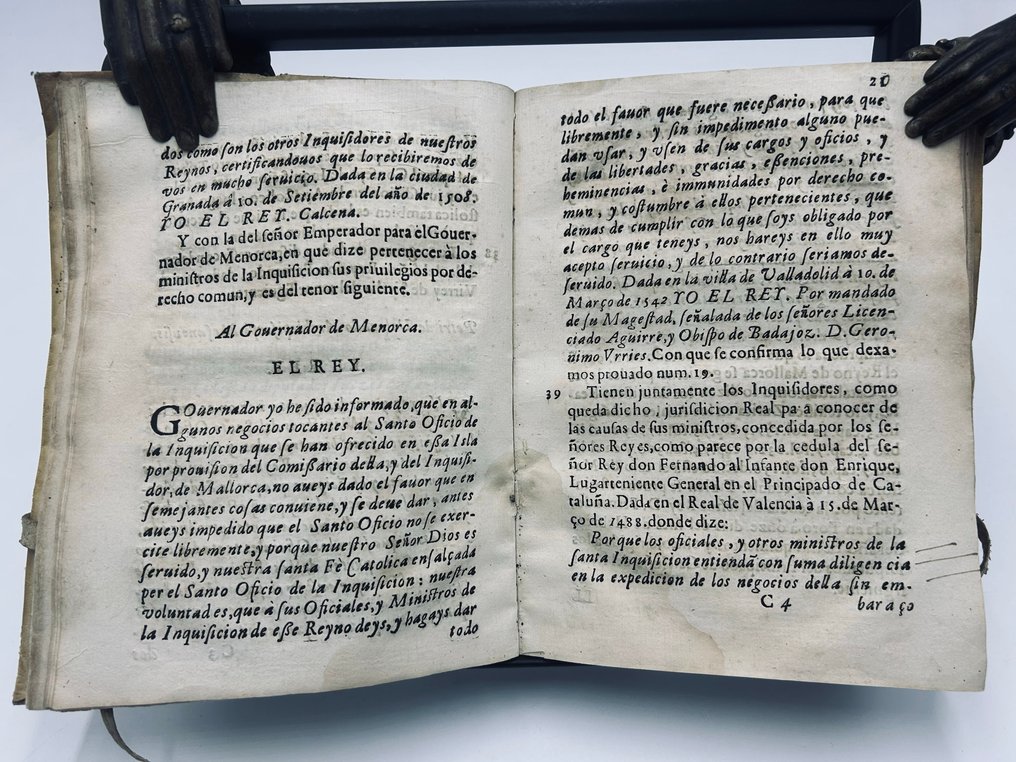 dos como ſon los otros Inquiſidores de nueſtros
Reynos, certificandouos que lo recibiremos de
vos en mucho ſeruicio. Dada en la ciudad de
Granada à 10. de Setiembre del año de 1508.
YO EL REY. Calcena.
Y con la del ſeñor Emperador para el Gouer-
nador de Menorca, en que dize pertenecer à los
miniſtros de la Inquiſicion ſus priuilegios por de-
recho comun, y es del tenor ſiguiente.
Al Gouernador de Menorca.
EL REY.
GOuernador yo he ſido informado, que en al-
gunos negocios tocantes al Santo Oficio de
la Inquiſicion que ſe han ofrecido en eßa Isla
por prouiſion del Comißario della, y del Inquiſi-
dor, de Mallorca, no aueys dado el fauor que en
ſemejantes coſas conuiene, y ſe deue dar, antes
aueys impedido que el Santo Oficio no ſe exer-
cite libremente, y porque nueſtro Señor Dios es
ſeruido, y nueſtra ſanta Fè Catolica enſalçada
per el Santo Oficio de la Inquiſicion: nueſtra
voluntad es, que à ſus Oficiales, y Miniſtros de
la Inquiſicion de eße Reyno deys, y hagays dar
todo
21
todo el fauor que fuere neceßario, para que
libremente, y ſin impedimento alguno pue-
dan vſar, y vſen de ſus cargos y oficios, y
de las libertades, gracias, eßenciones, pre-
heminencias, è immunidades por derecho co-
mun, y coſtumbre à ellos pertenecientes, que
demas de cumplir con lo que ſoys obligado por
el cargo que teneys, nos hareys en ello muy
acepto ſeruicio, y de lo contrario ſeriamos de-
ſeruido. Dada en la villa de Valladolid à 10. de
Março de 1542. YO EL REY. Por mandado
de ſu Mageſtad, ſeñalada de los ſeñores Licen-
ciado Aguirre, y Obiſpo de Badajoz. D. Gero-
nimo Vrries. Con que ſe confirma lo que dexa-
mos prouado num. 19.
39 Tienen juntamente los Inquiſidores, como
queda dicho, juriſdicion Real pa a conocer de
las cauſas de ſus miniſtros, concedida por los ſe-
ñores Reyes, como parece por la cedula del ſe-
ñor Rey don Fernando al Infante don Enrique,
Lugarteniente General en el Principado de Ca-
taluña. Dada en el Real de Valencia à 15. de Mar-
ço de 1488. donde dize:
Porque los oficiales, y otros miniſtros de la
ſanta Inquiſicion entiendã con ſuma diligen cia
en la expedicion de los negocios della ſin em-
C 4 baraço